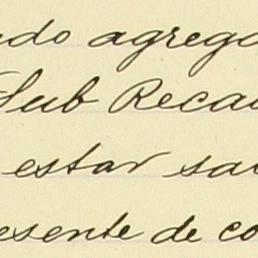 ndo agrega
Sub Reca
estar sa
esente de co